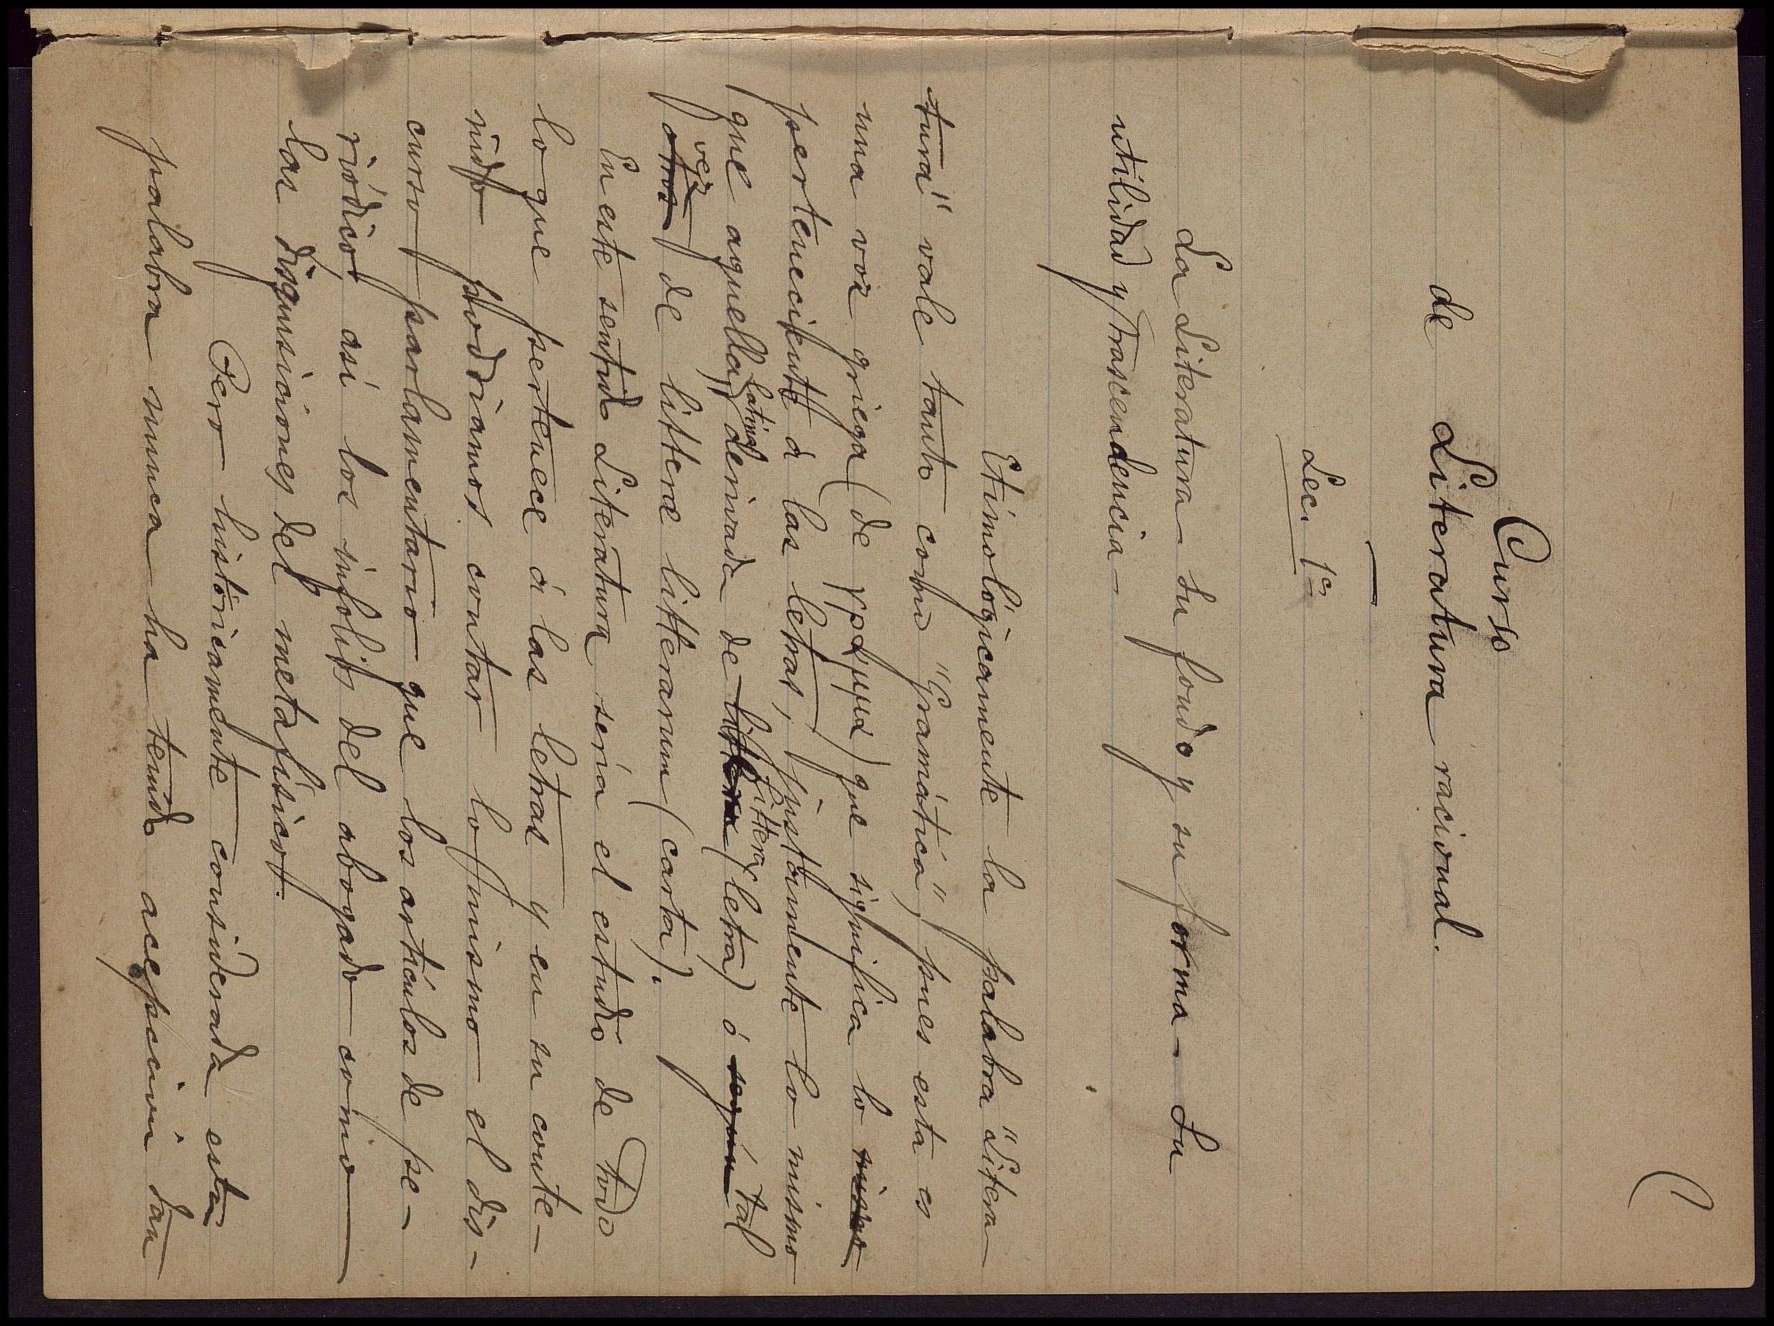 Curso
de Literatura racional.
Lec. 1ª
La Literatura - su fondo y su forma - Su
utilidad y trascendencia -
Etimológicamente la palabra "Litera-
tura" vale tanto como "Gramática", pues esta es
una voz griega (de γράμμα) que significa lo mismo
perteneciente á las letras, justamente lo mismo
que aquella, latina derivada de littera (littera letra) ó según tal
vez otros de litteræ litterarum (carta).
En este sentido Literatura sería el estudio de todo
lo que pertenece á las letras y en su conte-
nido podríamos contar lo mismo el dis-
curso parlamentario que los artículos de pe-
riódico, así los infolios del abogado como
las disquisiciones del metafísico.
Pero históricamente considerada esta
palabra nunca ha tenido acepcion tan